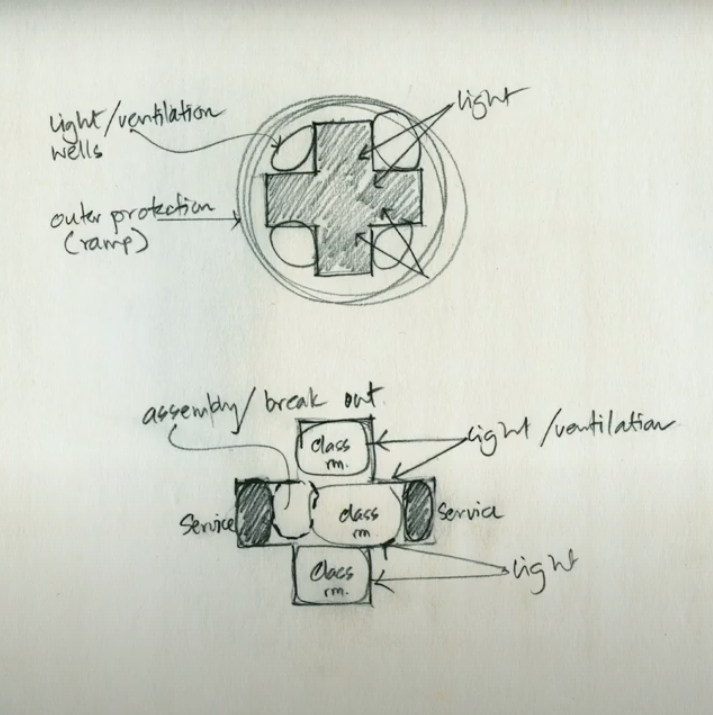 light/ventilation
wells
light
outer protection
(ramp)
assembly/break out
class
rm.
light/ventilation
Service
class
rm
Service
class
rm.
light